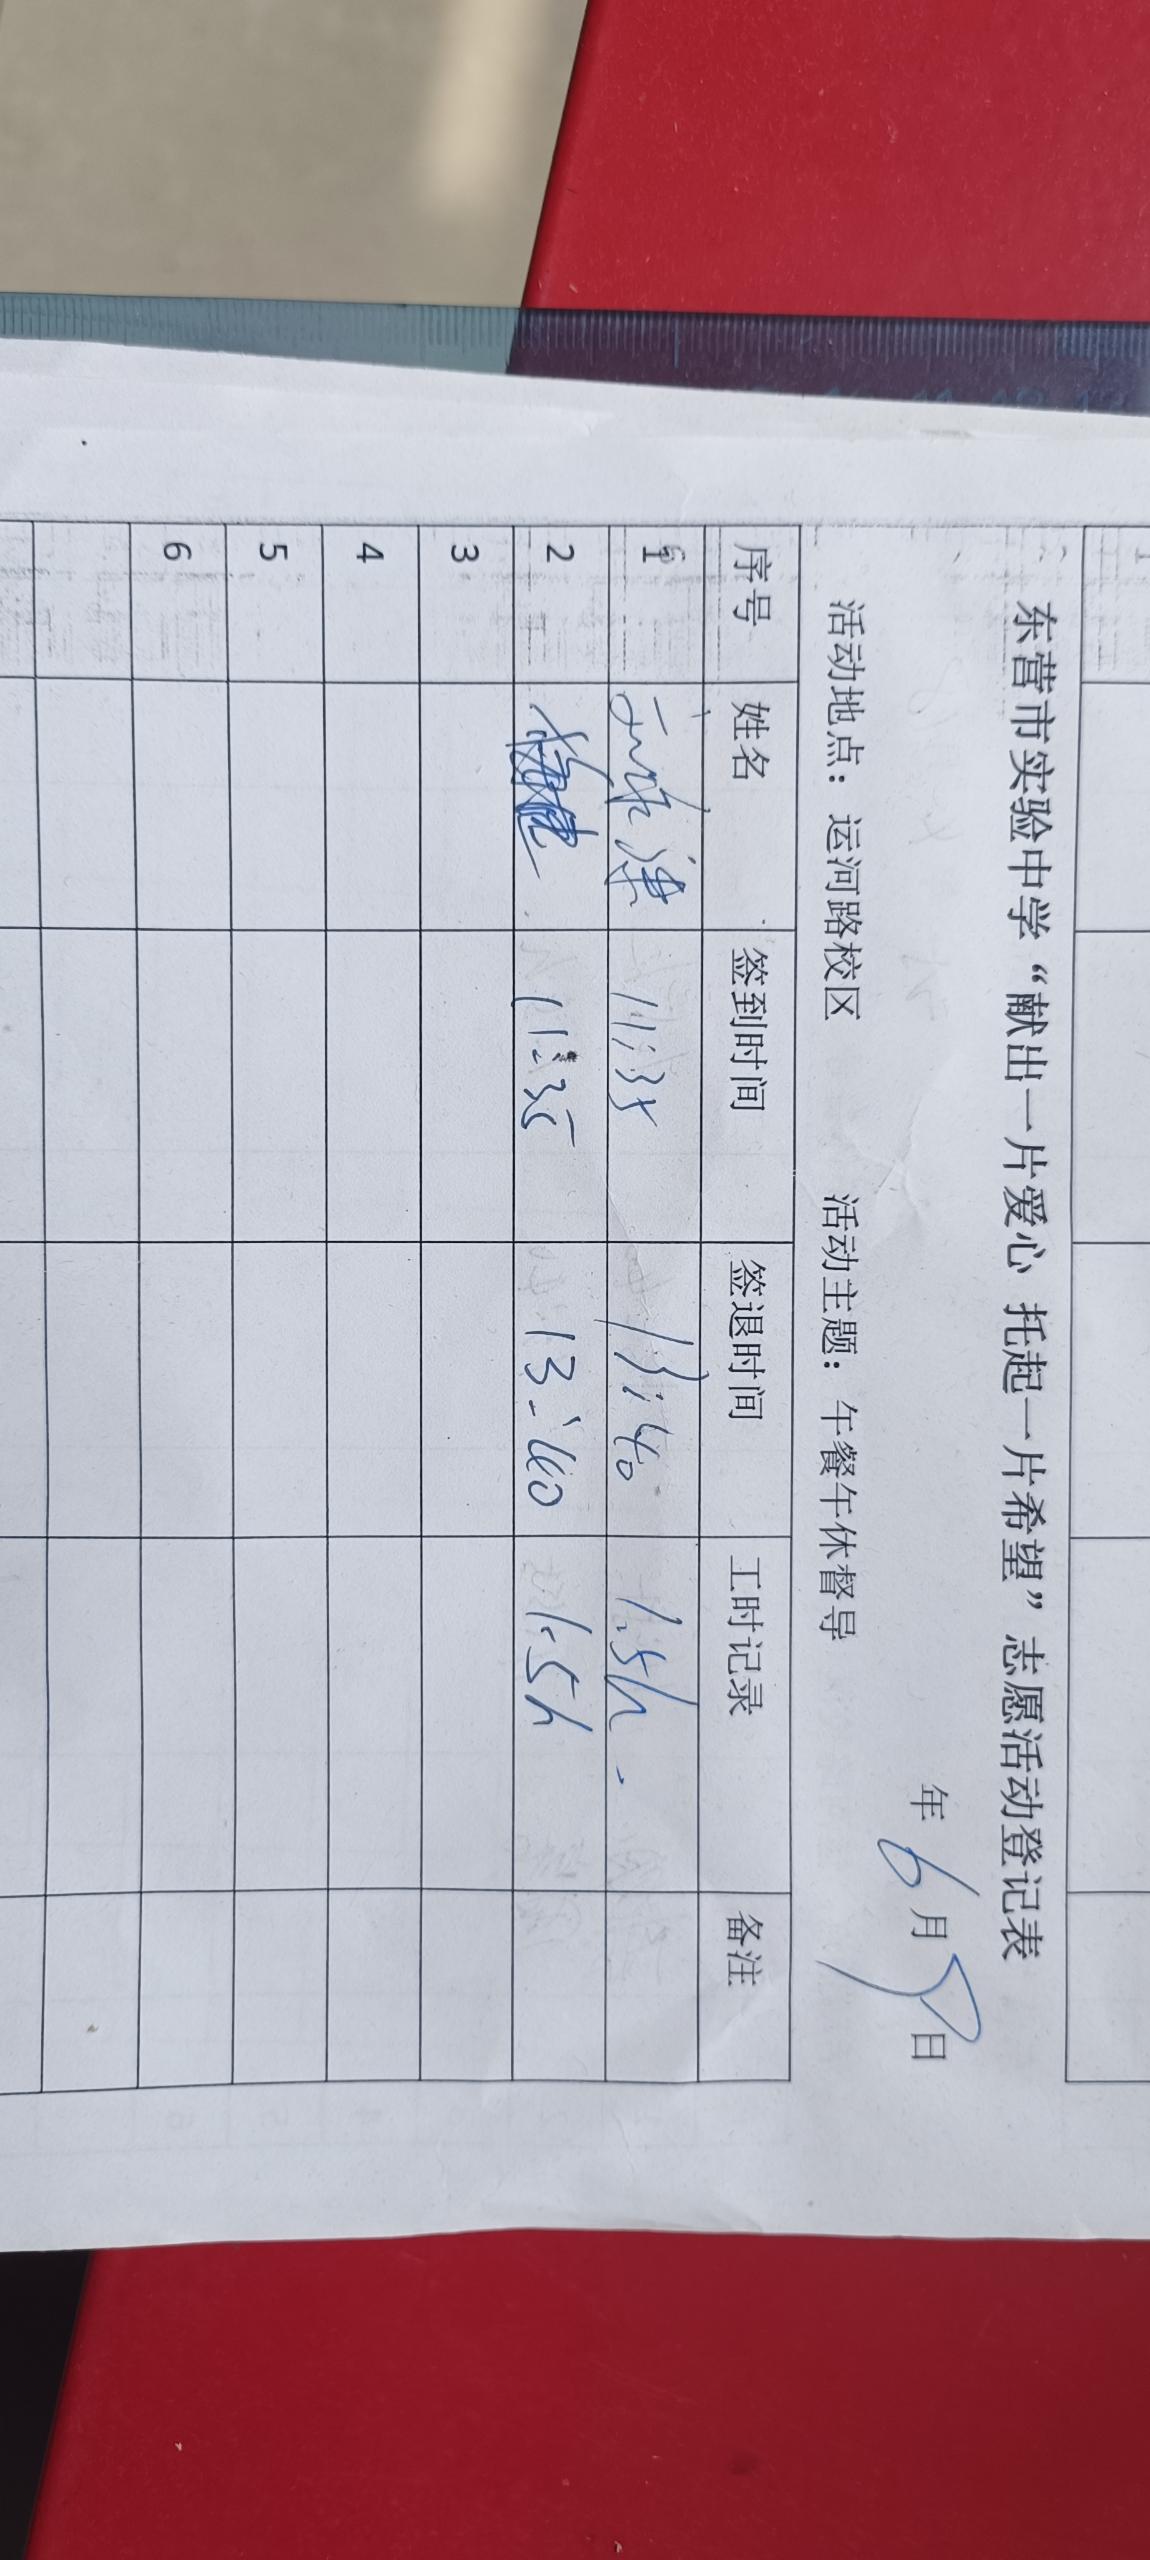 东营市实验中学“献出一片爱心 托起一片希望”志愿活动登记表
年 6月 日
活动地点：运河路校区 活动主题：午餐午休督导
序号 姓名 签到时间 签退时间 工时记录 备注
1 11:35 13:40 1.5h.
2 11:35 13:40 1.5h
3
4
5
6